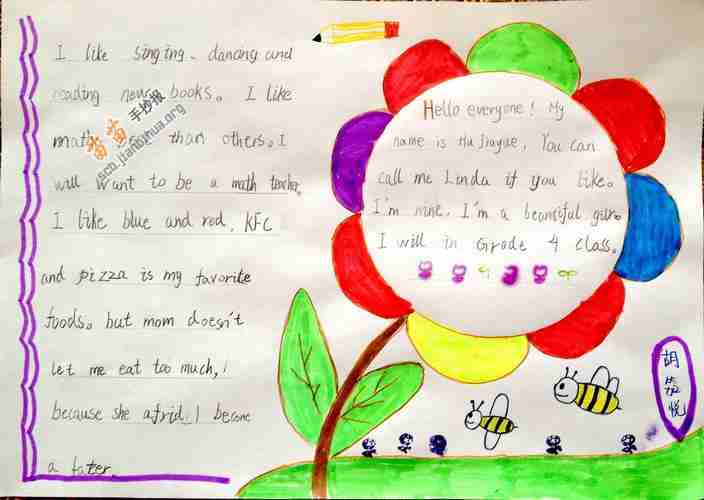 Hello everyone! My
name is Hu Jiayue. You can
call me Linda if you like。
I'm nine. I'm a beautiful girl。
I will in Grade 4 class。
I like singing. dancing and
reading new books。 I like
math than others。I
will want to be a math teacher.
I like blue and red. KFC
and pizza is my favorite
foods。but mom doesn't
let me eat too much,
because she afrid I become
a fater.
手抄报
sco.jianbihua.org
胡
悦